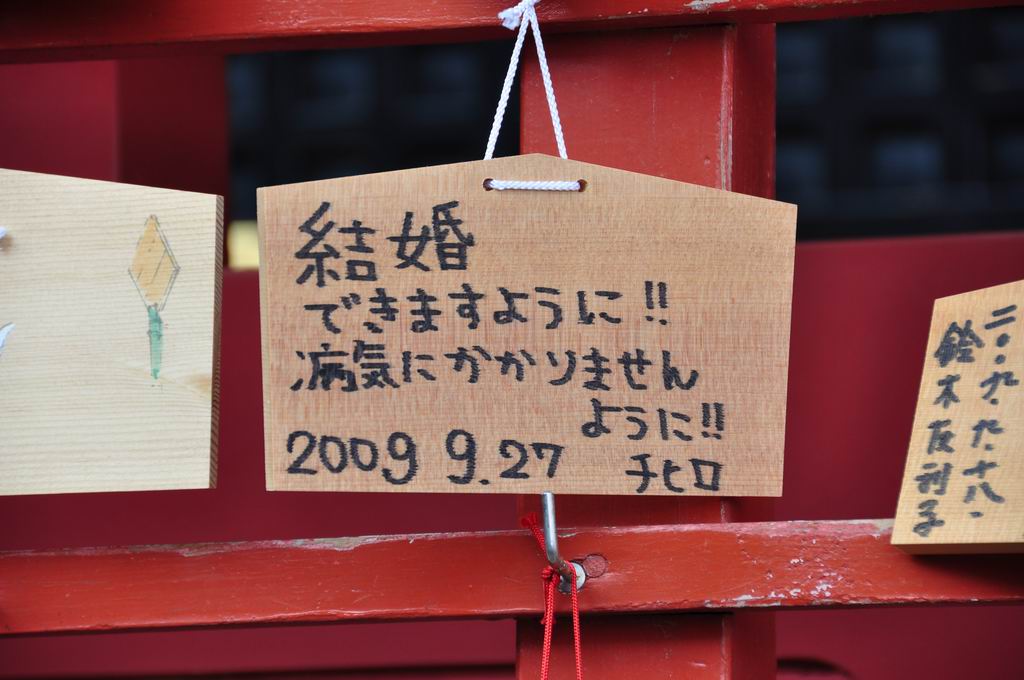 結婚
できますように!!
病気にかかりません
ように!!
2009 9.27 チヒロ
二〇・九・九・十八・
鈴木友利子